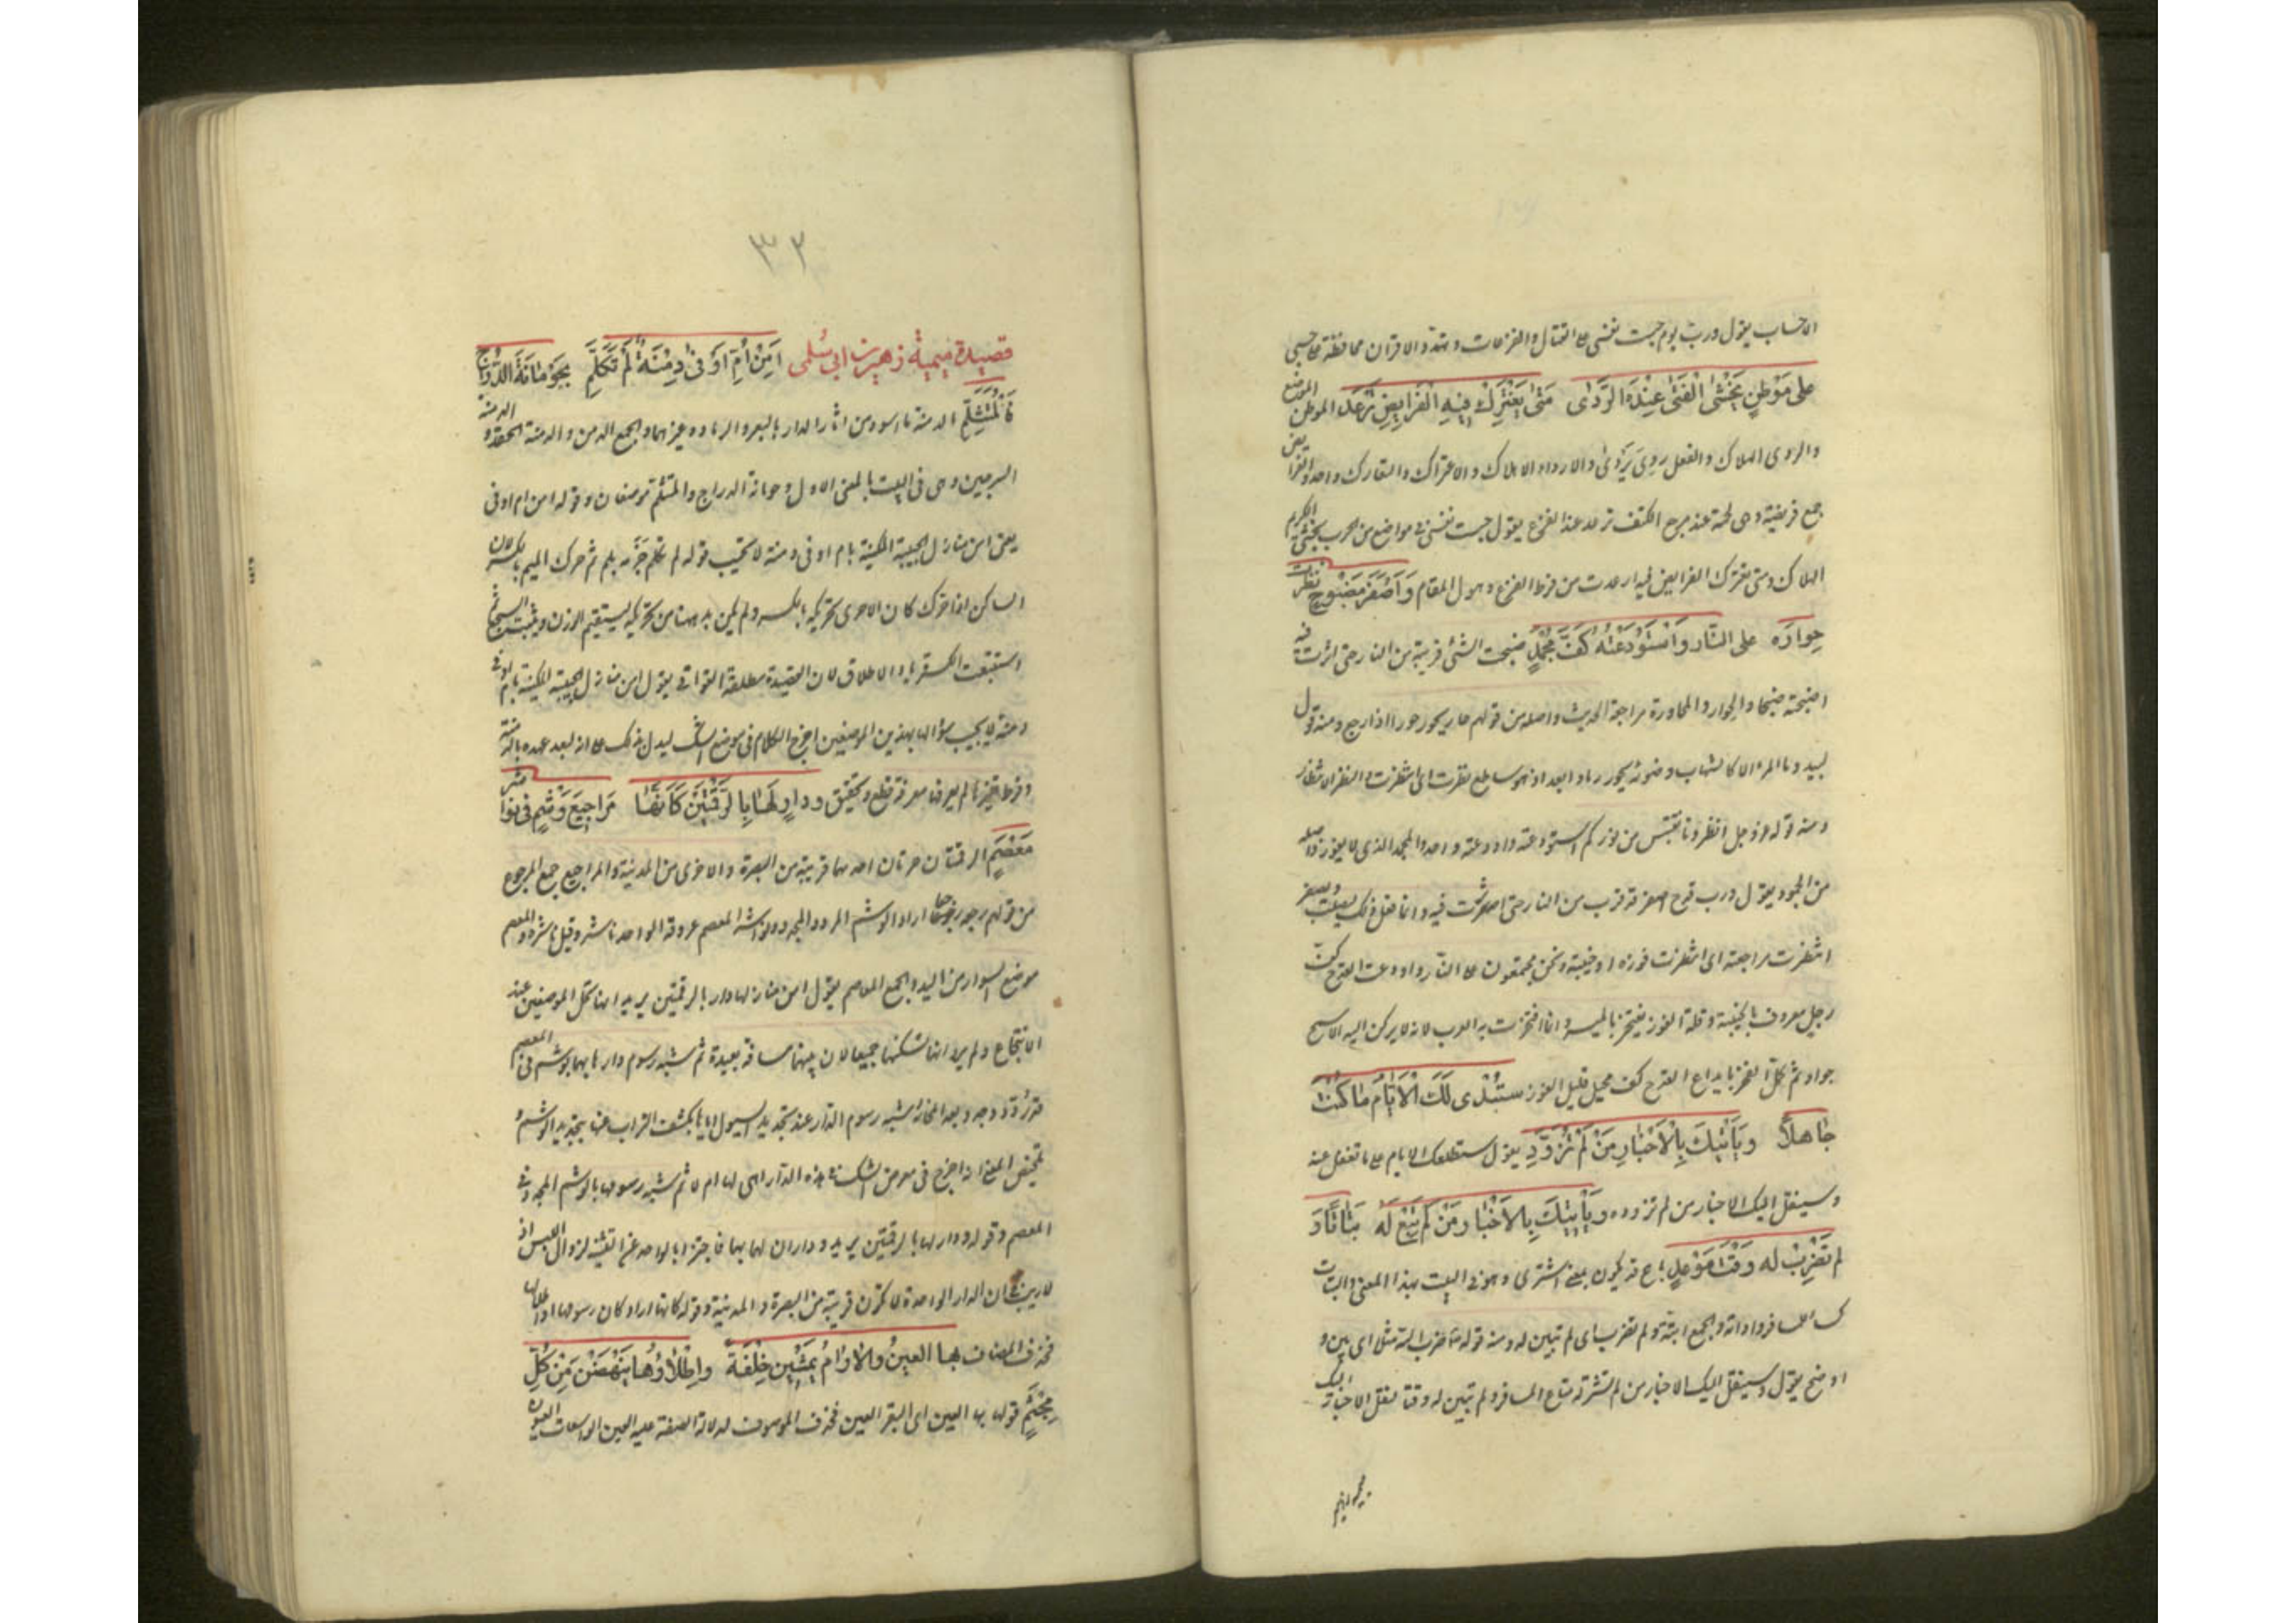 الاحساب يقول ورب يوم حبست نفسى على القتال والفزعات وتهدد الاقران محافظة على حسبى
على مَوْطِنٍ يَخْشَى الْفَتَى عِنْدَهُ الرَّدَى مَتَى يَعْتَرِكْ فِيهِ الْفَرَايِصُ تُرْعَدِ الموطن الموضع
والردى الهلاك والفعل ردى يردى والارداء الاهلاك والاعتراك والتعارك واحد والفرايص
جمع فريصة وهى لحمة عند مرجع الكتف ترعد عند الفزع يقول حبست نفسى فى مواضع من الحرب يخشى الكريم
الهلاك ومتى تعترك الفرايص فيه ارعدت من فرط الفزع وهول المقام وَاَصْفَرَ مَضْبُوحٍ نَظَرْتُ
حِوَارَهُ على النَّار وَاسْتَوْدَعْتُهُ كَفَّ مُجْمِدِ ضبحت الشئ قربته من النار حتى اثرت فيه
اضبحه ضبحا والحوار والمحاورة مراجعة الحديث واصله من قولهم حار يحور حورا اذا رجع ومنه قول
لبيد وما المرء الا كالشهاب وضوئه يحور رمادا بعد اذ هو ساطع نظرت اى انتظرت والنظر الانتظار
ومنه قوله عز وجل انظرونا نقتبس من نوركم استودعته واودعته واحد والمجمد الذى لا يفوز واصله
من الجمود يقول ورب قدح اصفر قد قرب من النار حتى اثرت فيه وانما فعل ذلك ليصلب ويصفر
انتظرت مراجعته اى انتظرت فوزه او خيبته ونحن مجتمعون على النار واودعت القدح كف
رجل معروف بالخيبة وقلة الفوز يفتخر بالميسر وانما افتخرت به العرب لانه لا يركن اليه الا سمح
جواد ثم كمل الفخر بايداع القدح كف مجمد قليل الفوز سَتُبْدِى لَكَ الْاَيَّامُ مَا كُنْتَ
جَاهِلاً وَيَأْتِيكَ بِالْاَخْبَارِ مَنْ لَمْ تُزَوِّدِ يقول ستطلعك الايام على ما تغفل عنه
وسينقل اليك الاخبار من لم تزوده وَيَأْتِيكَ بِالاَخْبَارِ مَنْ لَمْ تَبِعْ لَهُ بَتَاتًا وَ
لَم تَضْرِبْ لَه وَقْتَ مَوْعِدٍ باع قد يكون بمعنى اشترى وهو فى البيت بهذا المعنى والبتات
كساء المسافر واداته والجمع ابتة ولم تضرب اى لم تبين له ومنه قوله تعالى ضرب الله مثلا اى بين و
اوضح يقول وسينقل اليك الاخبار من لم تشتر له متاع المسافر ولم تبين له وقتا لنقل الاخبار اليك
٣٢
قصيدة ميمية زهير بن ابى سُلمى اَمِنْ اُمِّ اَوْفَى دِمْنَةٌ لَمْ تَكَلَّمِ بِحَوْمَانَةِ الدُّرَّاجِ
فَالْمُتَثَلَّمِ الدمنة ما اسود من اثار الدار بالبعر والرماد وغيرهما والجمع الدمن والدمنة الحقد و الدمنة
السرجين وهى فى البيت بالمعنى الاول وحومانة الدراج والمتثلم موضعان وقوله امن ام اوفى
يعنى امن منازل الحبيبة المكنية بام اوفى دمنة لا تجيب قوله لم تكلم جزمه بلم ثم حرك الميم بالكسر لان
الساكن اذا حرك كان الاحرى تحريكه بالكسر ولم يكن بد ههنا من تحريكه ليستقيم الوزن ويثبت السجع ثم
استتبعت الكسرة ياء الاطلاق لان القصيدة مطلقة القوافى يقول امن منازل الحبيبة المكنية بام اوفى
دمنة لا تجيب سؤالها بهذين الموضعين اخرج الكلام فى موضع الشك ليدل بذلك على انه لبعد عهده بالدمنة
وفرط تغيرها لم يعرفها معرفة قطع وتحقيق ودارٍ لَهَا بِالرَّقْمَتَيْنِ كَاَنَّهَا مَرَاجِيعُ وَشْمٍ فى نواشر
مَعْصَمِ الرقمتان حرتان احدهما قريبة من البصرة والاخرى من المدينة والمراجيع جمع المرجوع
من قولهم رجعه رجوعا اراد الوشم المردد المجدد ونواشر المعصم عروقه الواحد ناشر وقيل ناشرة والمعصم
موضع السوار من اليد والجمع المعاصم يقول امن منازلها دار بالرقمتين يريد انها تحل الموضعين عند
الانتجاع ولم يرد انها تسكنهما جميعا لان بينهما مسافة بعيدة ثم شبه رسوم دارها بهما بوشم فى المعصم
قد ردد وجدد بعد انمحائه شبه رسوم الدار عند تجديد السيول اياها بكشف التراب عنها بتجديد الوشم و
تلخيص المعنى انه اخرج فى معرض الشك فى هذه الدار اهى لها ام لا ثم شبه رسومها بالوشم المجدد فى
المعصم وقوله ودار لها بالرقمتين يريد وداران لها بهما فاجتزأ بالواحد عن التثنية لزوال اللبس اذ
لا ريب فى ان الدار الواحدة لا تكون قريبة من البصرة والمدينة وقوله كانها اراد كان رسومها او اطلالها
فحذف المضاف بِهَا العِينُ وَالْاَرَامُ يَمْشِينَ خِلْفَةً وَاَطْلَاؤُهَا يَنْهَضْنَ مِنْ كُلِّ
مَجْثَمِ قوله بها العين اى البقر العين فحذف الموصوف لدلالة الصفة عليه والعين الواسعات العيون